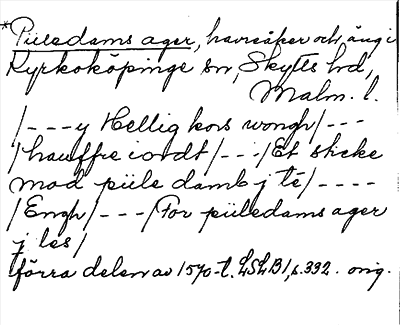 *Piiledams ager, havreåker och äng i
Kyrkoköpinge sn, Skytts hd,
Malm. l.
/---y Hellig kors wongh/---
/hauffre iordt/---/Et sticke
mod piile damb j té/----
/Engh/---/For piiledams ager
j les/
förra delen av 1570-t. LSLB1, s. 392. orig.